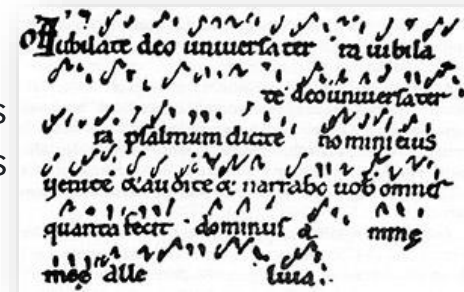 Off Iubilate deo uniuersa ter ra iubila
te deo uniuersa ter
ra psalmum dicite nomini eius
uenite & audite & narrabo uob omnes
quanta fecit dominus a nime
mee alle luia: